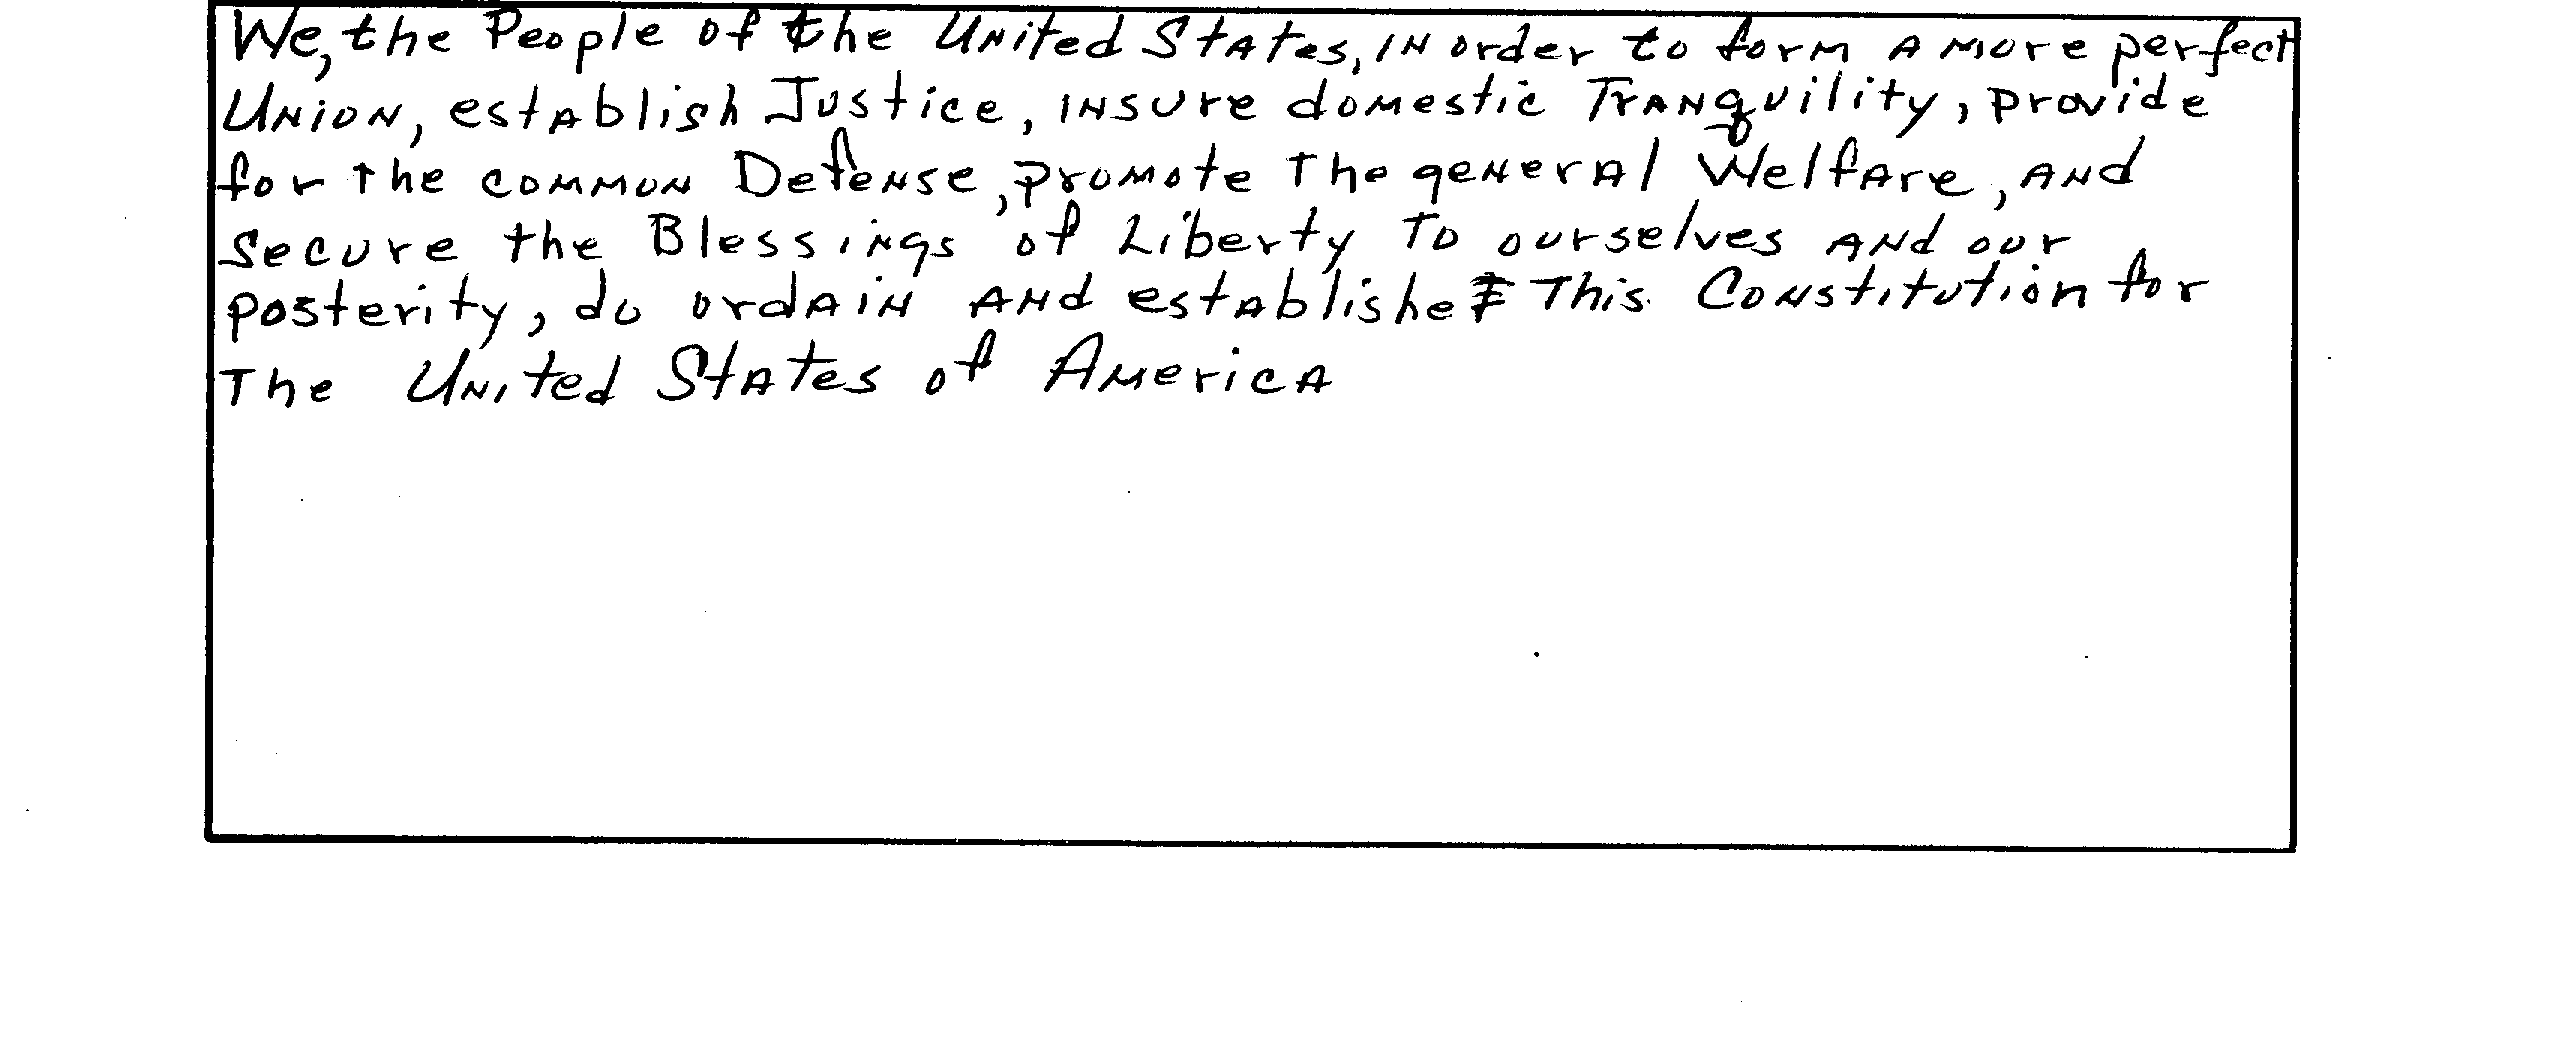 We, the People of the United States, in order to form a more perfect
Union, establish Justice, insure domestic Tranquility, provide
for the common Defense, promote the general Welfare, and
secure the Blessings of Liberty to ourselves and our
posterity, do ordain and establishe this Constitution for
The United States of America